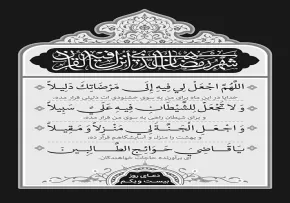 شهر رمضان الذی انزل فیه القرآن
اَللّهُمَّ اجْعَلْ لي فيهِ اِلى مَرْضاتِكَ دَليلاً
خدایا در این ماه برای من به سوی خشنودی ات دلیلی قرار مده،
وَ لا تَجْعَلْ لِلشَّيْطانِ فيهِ عَلَىَّ سَبيلاً
و برای شیطان راهی به سوی من قرار مده،
وَ اجْعَلِ الْجَنَّةَ لي مَنْزِلاً وَ مَقيلاً
و بهشت را منزل و آسایشگاهم قرار ده،
يا قاضِيَ حَوائِجِ الطّالِبينَ
ای برآورنده حاجت خواهندگان.
دعای روز
بیست و یکم